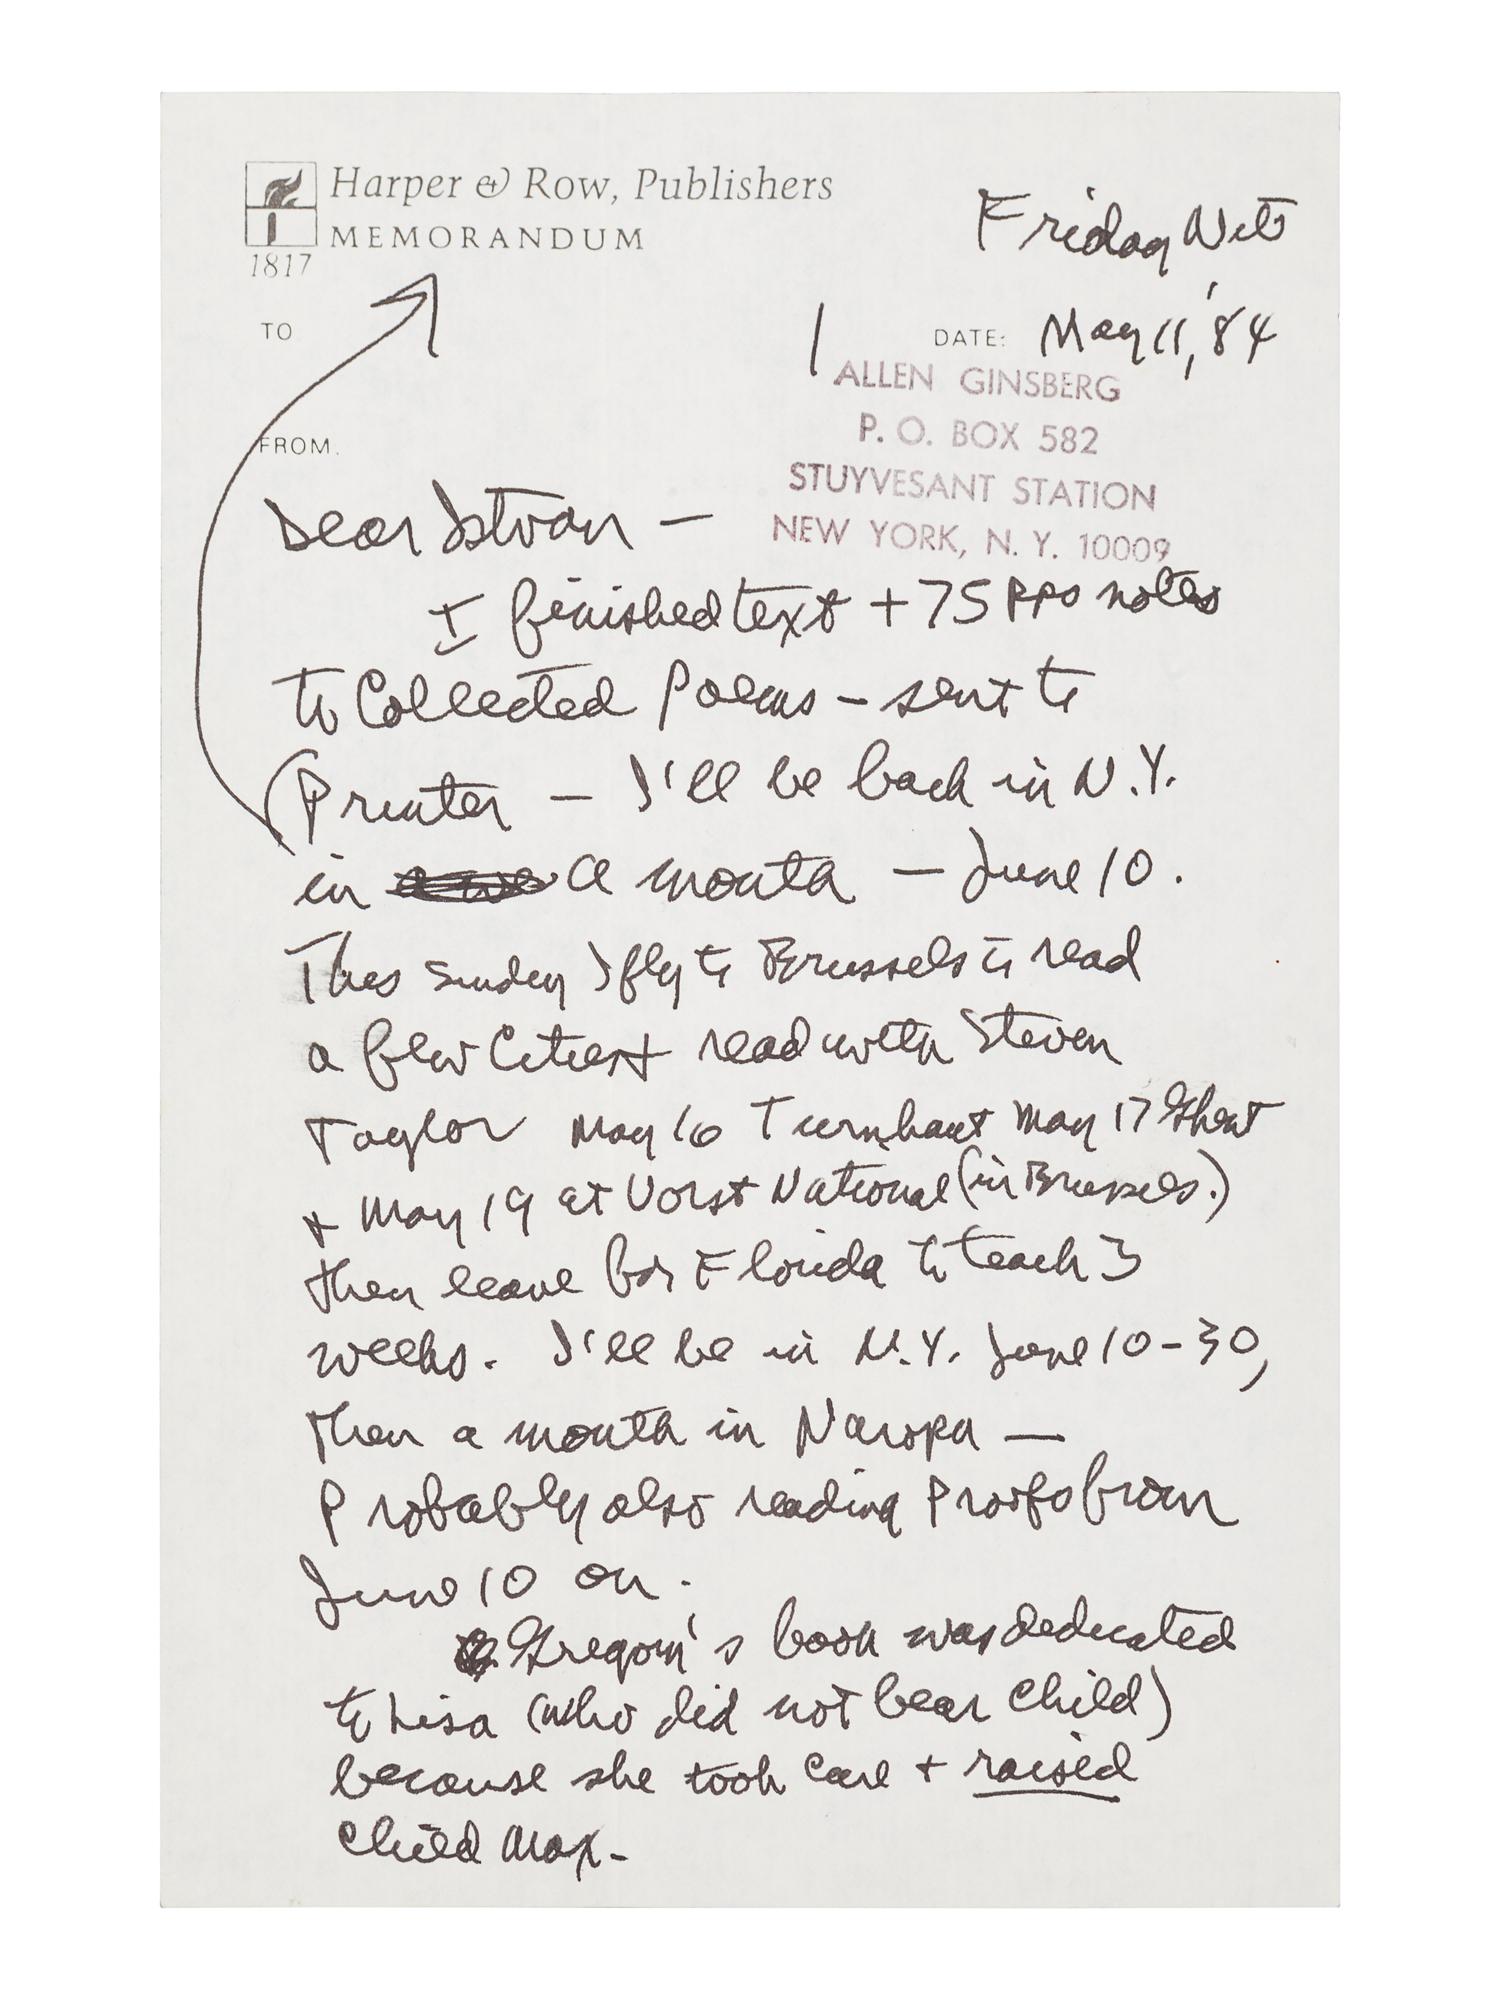 Harper & Row, Publishers
MEMORANDUM
1817
Friday Nite
TO
DATE: May 11, '84
ALLEN GINSBERG
P. O. BOX 582
STUYVESANT STATION
NEW YORK, N. Y. 10009
FROM.
Dear Istvan —
I finished text + 75 pps notes
to Collected Poems — sent to
Printer — I'll be back in N.Y.
in a month — June 10.
This Sunday I fly to Brussels to read
a few Cities + read with Steven
Taylor May 16 Turnhout May 17 Ghent
+ May 19 at Vorst National (in Brussels.)
then leave for Florida to teach 3
weeks. I'll be in N.Y. June 10-30,
then a month in Naropa —
Probably also reading Proofs from
June 10 on.
Gregory's book was dedicated
to Lisa (who did not bear child)
because she took care + raised
child Max-